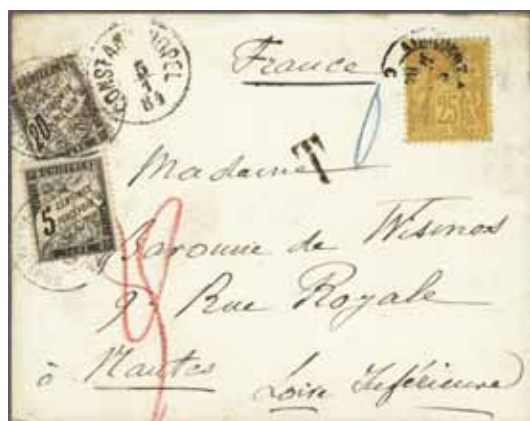 CONSTANTINOPEL
5
1
84
France
25
20
T
Madame
5
CENTIMES
Baronne de Wismes
9, Rue Royale
à Nantes
Loire Inférieure